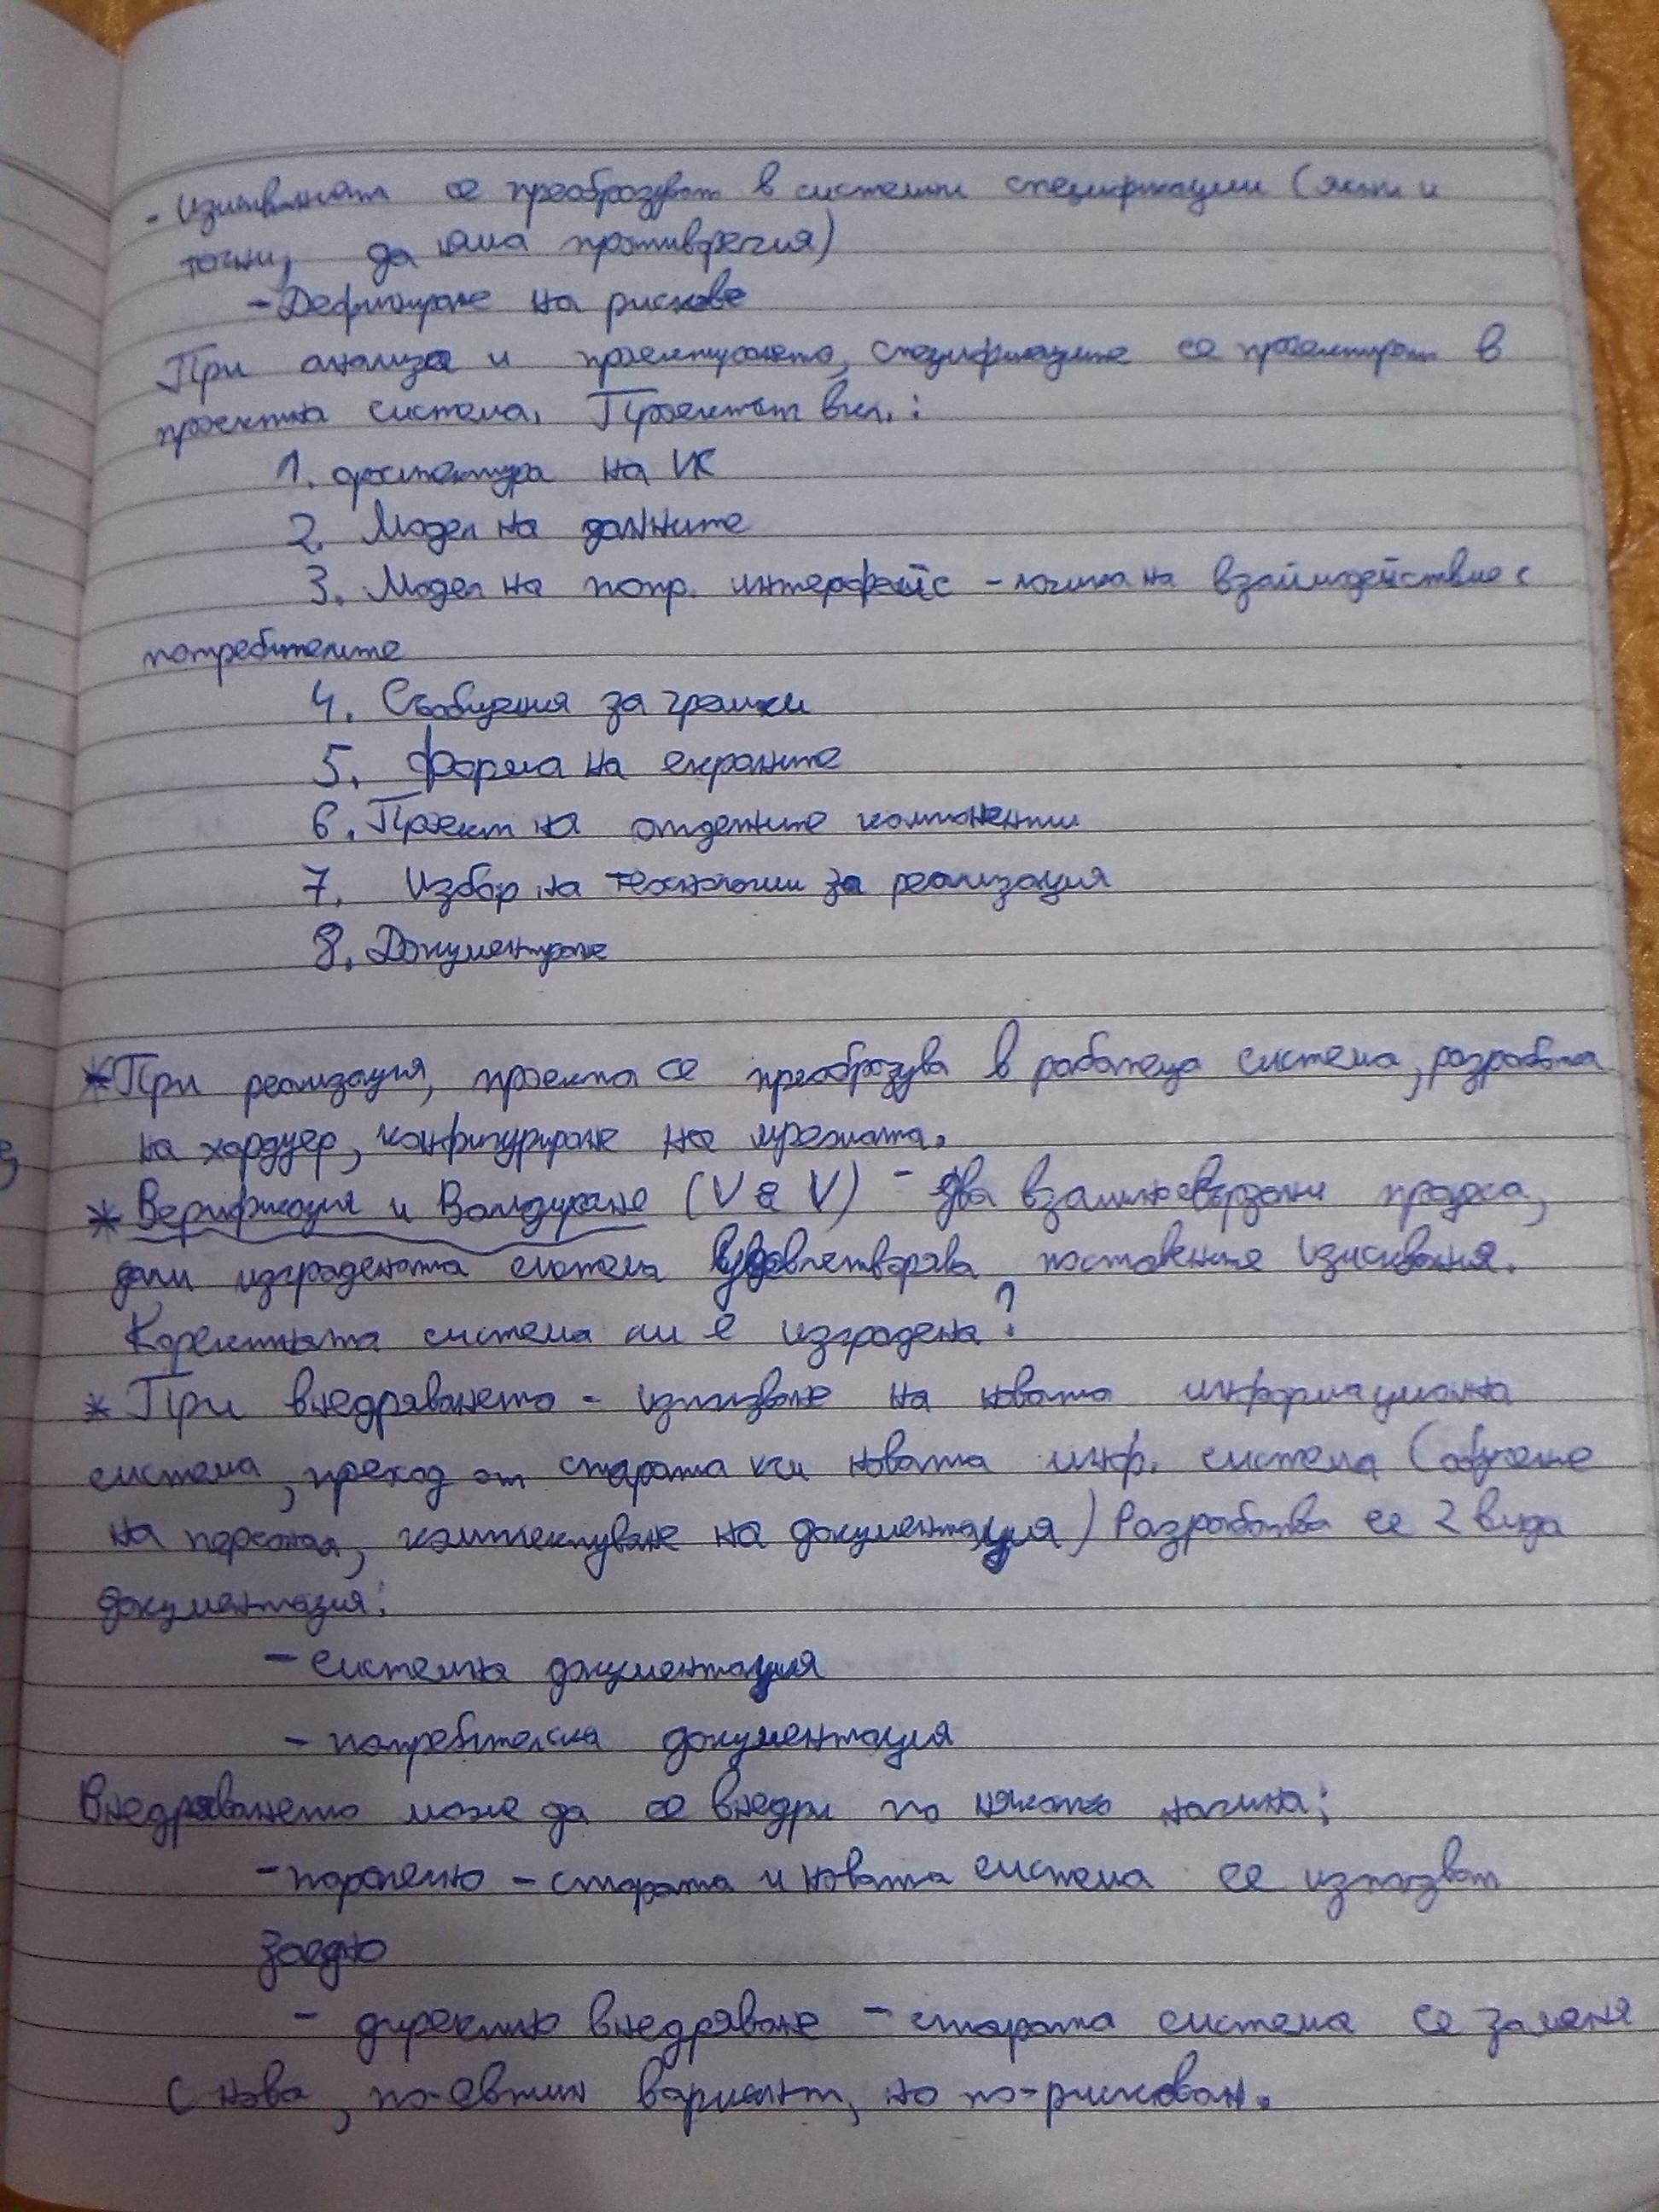 - Изискванията се преобразуват в системни спецификации (ясни и
точни, да няма противоречия)
- Дефиниране на рискове
При анализа и проектирането, спецификациите се проектират в
проектна система. Проектът вкл.:
1. архитектура на ИС
2. Модел на данните
3. Модел на потр. интерфейс - логика на взаимодействие с
потребителите
4. Съобщения за грешки
5. Форма на екраните
6. Проект на отделните компоненти
7. Избор на технологии за реализация
8. Документиране
* При реализация, проекта се преобразува в работеща система, разработка
на хардуер, конфигуриране на мрежата.
* Верификация и Валидиране (V & V) - два взаимносвързани процеса,
дали изградената система удовлетворява поставените изисквания.
Коректната система ли е изградена?
* При внедряването - използване на новата информационна
система, преход от старата към новата инф. система (обучение
на персонал, комплектуване на документация) Разработва се 2 вида
документация:
- системна документация
- потребителска документация
Внедряването може да се внедри по няколко начина:
- паралелно - старата и новата система се използват
заедно
- директно внедряване - старата система се заменя
с нова, по-евтин вариант, но по-рискован.